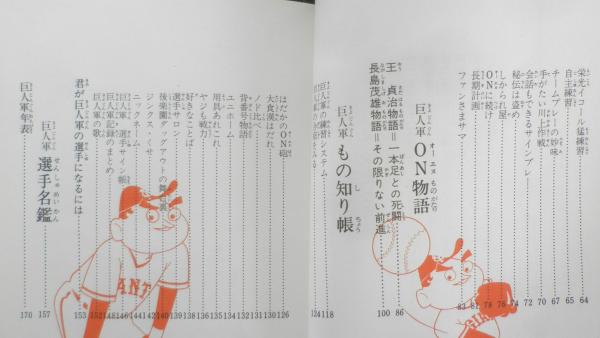 栄光イコール猛練習 64
自主練習 65
チームプレーの妙味 67
手がたい川上作戦 70
会話もできるサインプレー 72
秘伝は盗め 74
しかられ屋 78
ONに続け 78
長期計画 81
ファンさまサマ 83
巨人軍 ON物語
オーエヌものがたり
王 貞治物語＝一本足との死闘 86
長島茂雄物語＝その限りない前進 100
巨人軍 もの知り帳
巨人軍の練習システム 118
124
はだかのON砲 126
大食漢はだれ 130
ノド比べ 131
背番号物語 132
ユニホーム 134
用具あれこれ 135
ヤジも戦力 136
好きなことば 138
選手サロン 139
後楽園ドッグアウトの舞台裏 140
ジンクス・くサ 142
ニックネーム 144
巨人軍・選手サイン帳 146
巨人軍記録のまとめ 148
巨人軍の歌 152
君が巨人軍の選手になるには 153
巨人軍 選手名鑑 157
せんしゅめいかん
巨人軍年表 170
ANT
GI